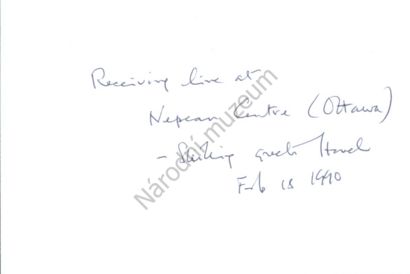 Receiving line at
Nepean Centre (Ottawa)
- Shaking Havel
Feb 18 1990
Národní muzeum